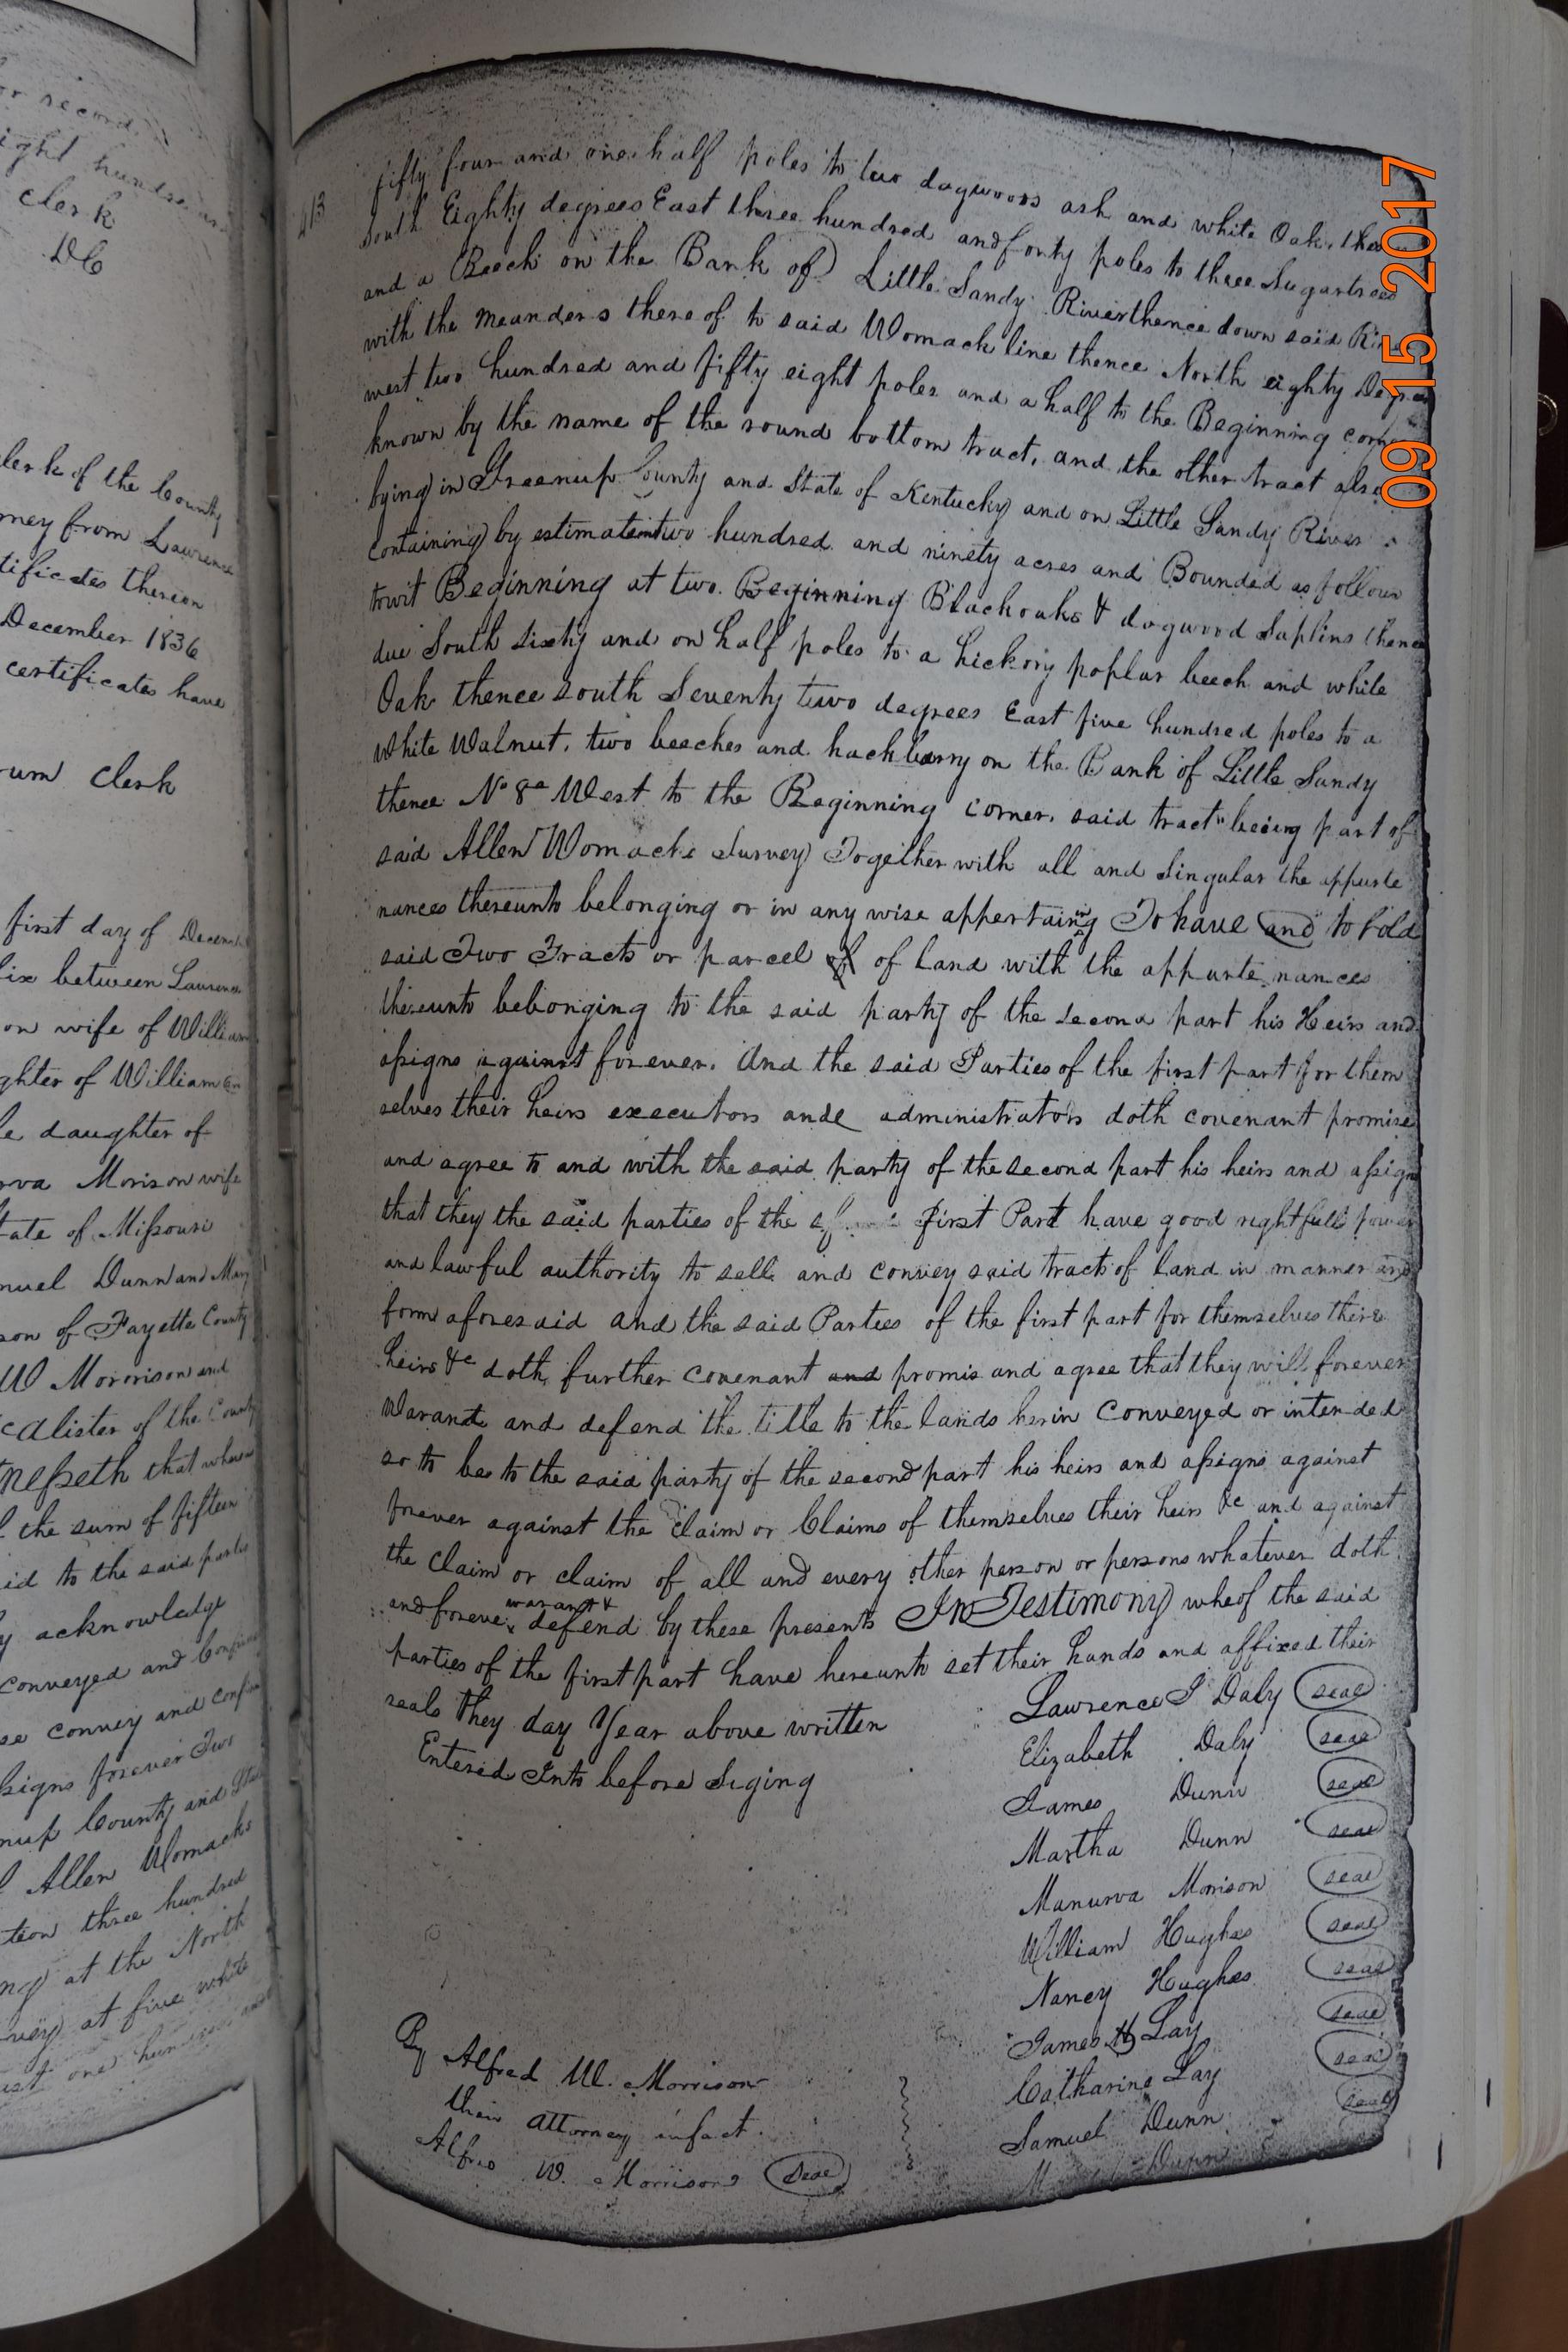 or record
ight hundred
clerk
DC
lerk of the County
rney from Lawrence
tificates thereon
December 1836
certificates have
rum Clerk
first day of Decem
ix between Lawrence
on wife of William
ghter of William
le daughter of
rva Morison wife
tate of Missouri
nuel Dunn and Mary
son of Fayette County
W Morrison and
cAlister of the County
nesseth that where
the sum of fifteen
id to the said parties
y acknowledge
conveyed and
se convey and confir
signs forever Two
nup County and Sta
Allen Womacks
tion three hundred
ng at the North
vey at five white
ast one hundred and
413
fifty four and one half poles to two dogwoods ash and white Oak, then
South Eighty degrees East three hundred and forty poles to three Sugartrees
and a Beech on the Bank of Little Sandy River thence down said Riv
with the meanders there of to said Womack line thence North eighty Degree
west two hundred and fifty eight poles and a half to the Beginning corn
known by the name of the round bottom tract, and the other tract also
lying in Greenup County and State of Kentucky and on Little Sandy River
containing by estimation two hundred and ninety acres and Bounded as follows
towit Beginning at two Beginning Blackoaks & dogwood Saplins thence
due South Sixty and on half poles to a hickory poplar beech and white
Oak thence South Seventy two degrees East five hundred poles to a
White Walnut, two beeches and hackberry on the Bank of Little Sandy
thence No 80 West to the Beginning corner, said tract being part of
said Allen Womacks Survey Together with all and Singular the appurte
nances thereunto belonging or in any wise appertaining To have and to hold
said Two Tracts or parcel of of land with the appurtenances
thereunto belonging to the said party of the second part his Heirs and
assigns against forever. And the said Parties of the first part for them
selves their heirs executors and administrators doth covenant promise
and agree to and with the said party of the second part his heirs and assigns
that they the said parties of the first Part have good right full power
and lawful authority to sell and convey said tracts of land in manner and
form aforesaid and the said Parties of the first part for themselves there
heirs &c doth further covenant and promis and agree that they will forever
Warant and defend the title to the lands herin conveyed or intended
so to be to the said party of the second part his heirs and assigns against
forever against the claim or Claims of themselves their heirs &c and against
the claim or claim of all and every other person or persons whatever doth
and forever warant & defend by these presents In Testimony wheof the said
parties of the first part have hereunto set their hands and affixed their
seals they day year above written
Entered Into before Siging
Lawrence J Daly seal
Elizabeth Daly seal
James Dunn seal
Martha Dunn seal
Manurva Morrison seal
William Hughes seal
Nancy Hughes seal
James H Lay seal
Catharine Lay seal
Samuel Dunn seal
Dunn
By Alfred W. Morrison
their attorney infact.
Alfred W. Morrison seal
09 15 2017